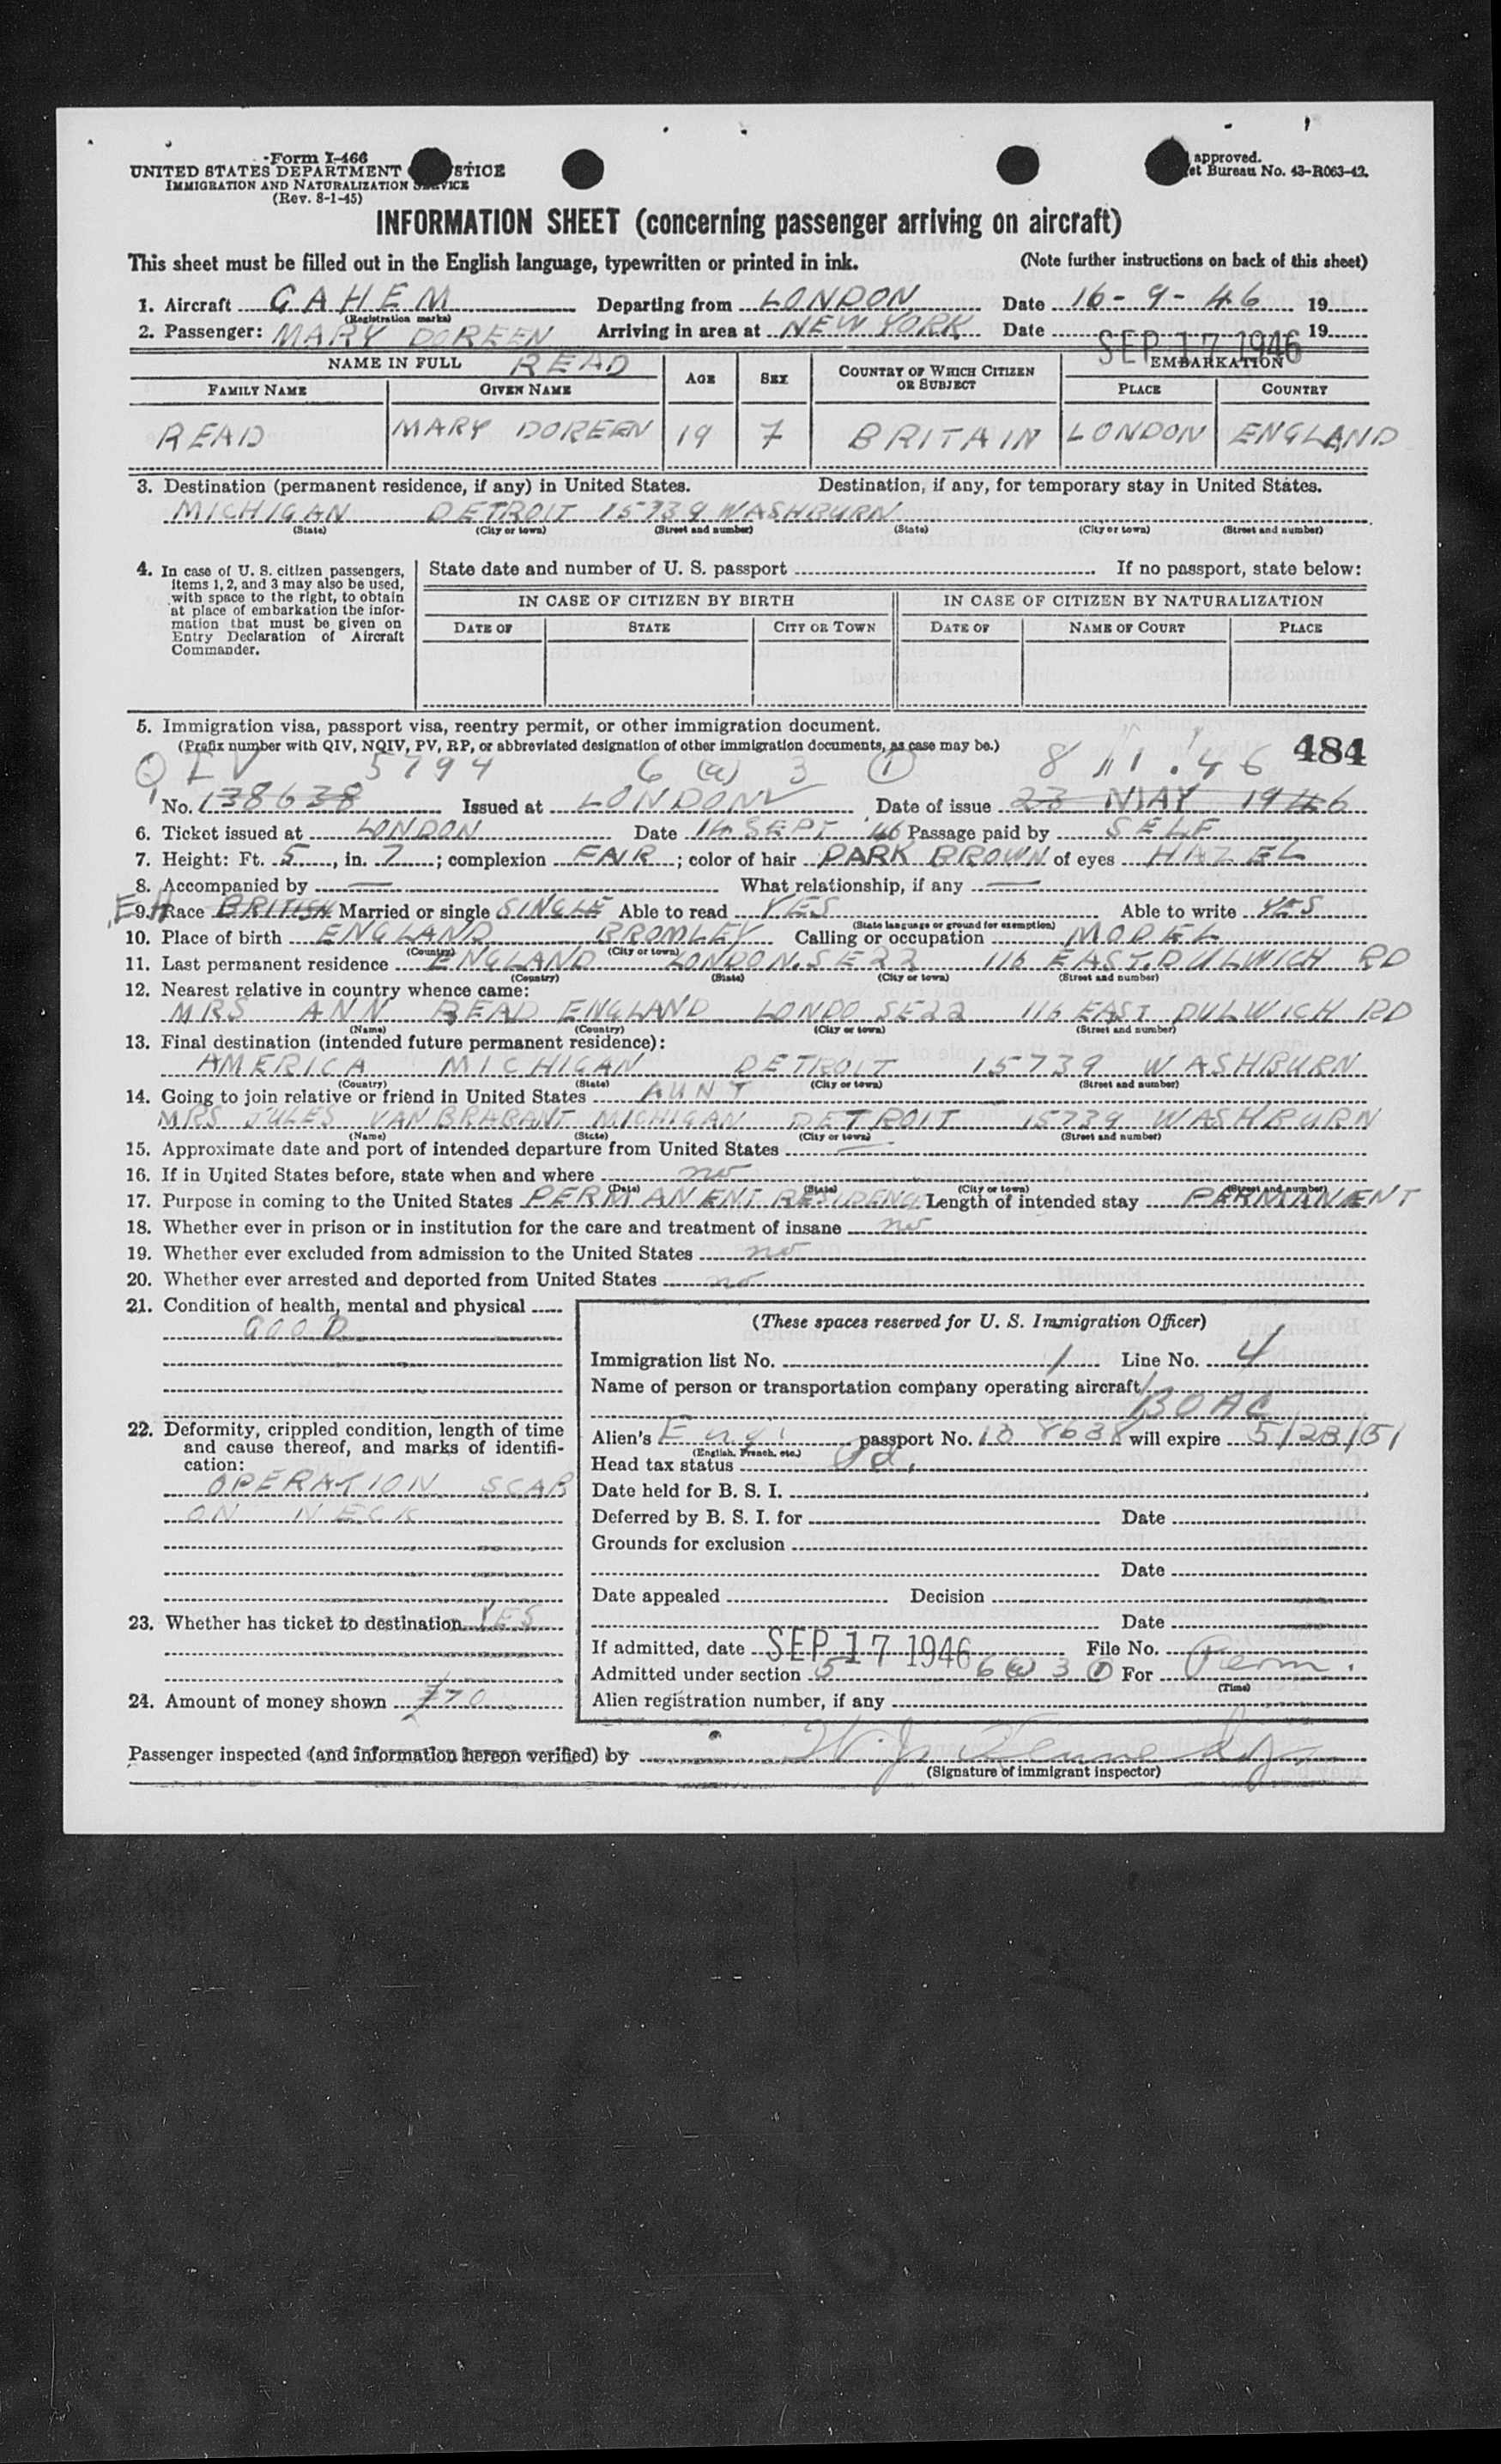 Form I-466
UNITED STATES DEPARTMENT STICE
IMMIGRATION AND NATURALIZATION SERVICE
(Rev. 8-1-45)
approved.
et Bureau No. 43-R063-42.
INFORMATION SHEET (concerning passenger arriving on aircraft)
This sheet must be filled out in the English language, typewritten or printed in ink. (Note further instructions on back of this sheet)
1. Aircraft GAHEM Departing from LONDON Date 16-9-46 19
(Registration marks)
2. Passenger: MARY DOREEN READ Arriving in area at NEW YORK Date SEP 17 1946 19
NAME IN FULL AGE SEX COUNTRY OF WHICH CITIZEN OR SUBJECT EMBARKATION
FAMILY NAME GIVEN NAME PLACE COUNTRY
READ MARY DOREEN 19 7 BRITAIN LONDON ENGLAND
3. Destination (permanent residence, if any) in United States. Destination, if any, for temporary stay in United States.
MICHIGAN DETROIT 15739 WASHBURN
(State) (City or town) (Street and number) (State) (City or town) (Street and number)
4. In case of U. S. citizen passengers, items 1, 2, and 3 may also be used, with space to the right, to obtain at place of embarkation the information that must be given on Entry Declaration of Aircraft Commander.
State date and number of U. S. passport If no passport, state below:
IN CASE OF CITIZEN BY BIRTH IN CASE OF CITIZEN BY NATURALIZATION
DATE OF STATE CITY OR TOWN DATE OF NAME OF COURT PLACE
5. Immigration visa, passport visa, reentry permit, or other immigration document.
(Prefix number with QIV, NQIV, PV, RP, or abbreviated designation of other immigration documents, as case may be.) 484
QIV 5794 6 (a) 3 (1) 8 11 . 46
No. 138638 Issued at LONDON Date of issue 23 MAY 1946
6. Ticket issued at LONDON Date 14 SEPT '46 Passage paid by SELF
7. Height: Ft. 5, in. 7; complexion FAIR; color of hair DARK BROWN of eyes HAZEL
8. Accompanied by — What relationship, if any —
9. Race BRITISH Married or single SINGLE Able to read YES Able to write YES
(State language or ground for exemption)
10. Place of birth ENGLAND BROMLEY Calling or occupation MODEL
(Country) (City or town)
11. Last permanent residence ENGLAND LONDON. SE22 116 EAST. DULWICH RD
(Country) (State) (City or town) (Street and number)
12. Nearest relative in country whence came:
MRS ANN READ ENGLAND LONDO SE22 116 EAST DULWICH RD
(Name) (Country) (City or town) (Street and number)
13. Final destination (intended future permanent residence):
AMERICA MICHIGAN DETROIT 15739 WASHBURN
(Country) (State) (City or town) (Street and number)
14. Going to join relative or friend in United States AUNT
MRS JULES VANBRABANT MICHIGAN DETROIT 15739 WASHBURN
(Name) (State) (City or town) (Street and number)
15. Approximate date and port of intended departure from United States —
16. If in United States before, state when and where no
(Date) (State) (City or town) (Street and number)
17. Purpose in coming to the United States PERMANENT RESIDENCE Length of intended stay PERMANENT
18. Whether ever in prison or in institution for the care and treatment of insane no
19. Whether ever excluded from admission to the United States no
20. Whether ever arrested and deported from United States no
21. Condition of health, mental and physical
GOOD
22. Deformity, crippled condition, length of time and cause thereof, and marks of identification:
OPERATION SCAR
ON NECK
23. Whether has ticket to destination YES
24. Amount of money shown 70
(These spaces reserved for U. S. Immigration Officer)
Immigration list No. 1 Line No. 4
Name of person or transportation company operating aircraft
BOAC
Alien's Engl passport No. 138638 will expire 5/23/51
(English, French, etc.)
Head tax status Pd.
Date held for B. S. I.
Deferred by B. S. I. for Date
Grounds for exclusion
Date
Date appealed Decision
Date
If admitted, date SEP 17 1946 File No.
Admitted under section 5 6 (a) 3 (1) For Perm.
(Time)
Alien registration number, if any
Passenger inspected (and information hereon verified) by W. J. Kennedy
(Signature of immigrant inspector)